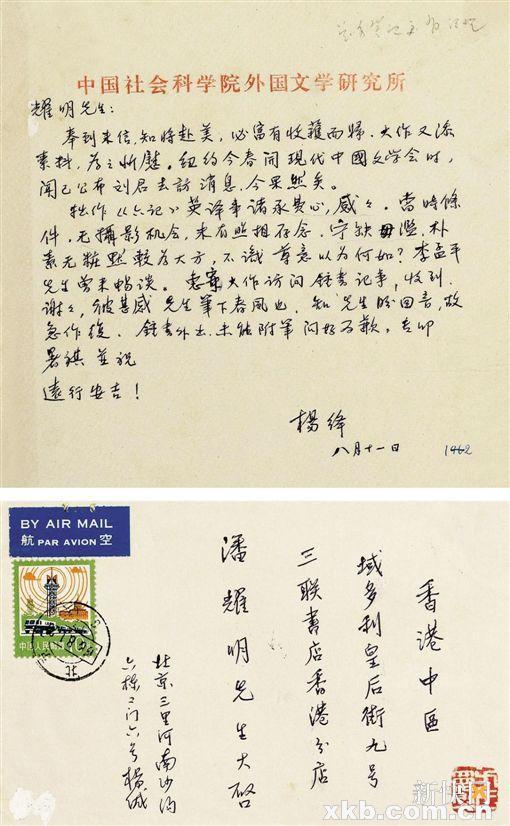 中国社会科学院外国文学研究所
耀明先生：
奉到来信，知將赴美，必富有收穫而歸，大作又添
素料，為之忻慰。纽约今春開现代中國文学会时，
闻已公布刘君去訪消息，今果然矣。
拙作《六记》英译事诸承費心，感々。當時條
件，无攝影机会，未有照相存念，宁缺毋濫，朴
素无粧點較為大方，不識尊意以为何如？李孟平
先生曾来暢谈。惠寄大作访问锺書记事，收到，
谢々，彼甚感先生筆下春風也。知先生盼回音，故
急作復。锺書外出，未能附筆问好为歉，专叩
暑祺並祝
遠行安吉！
楊绛
八月十一日
BY AIR MAIL
航 PAR AVION 空
中国人民邮政
香港中區
域多利皇后街九号
三联書店香港分店
潘耀明先生大啓
北京三里河南沙沟
六栋二门六号楊缄
新快报
xkb.com.cn